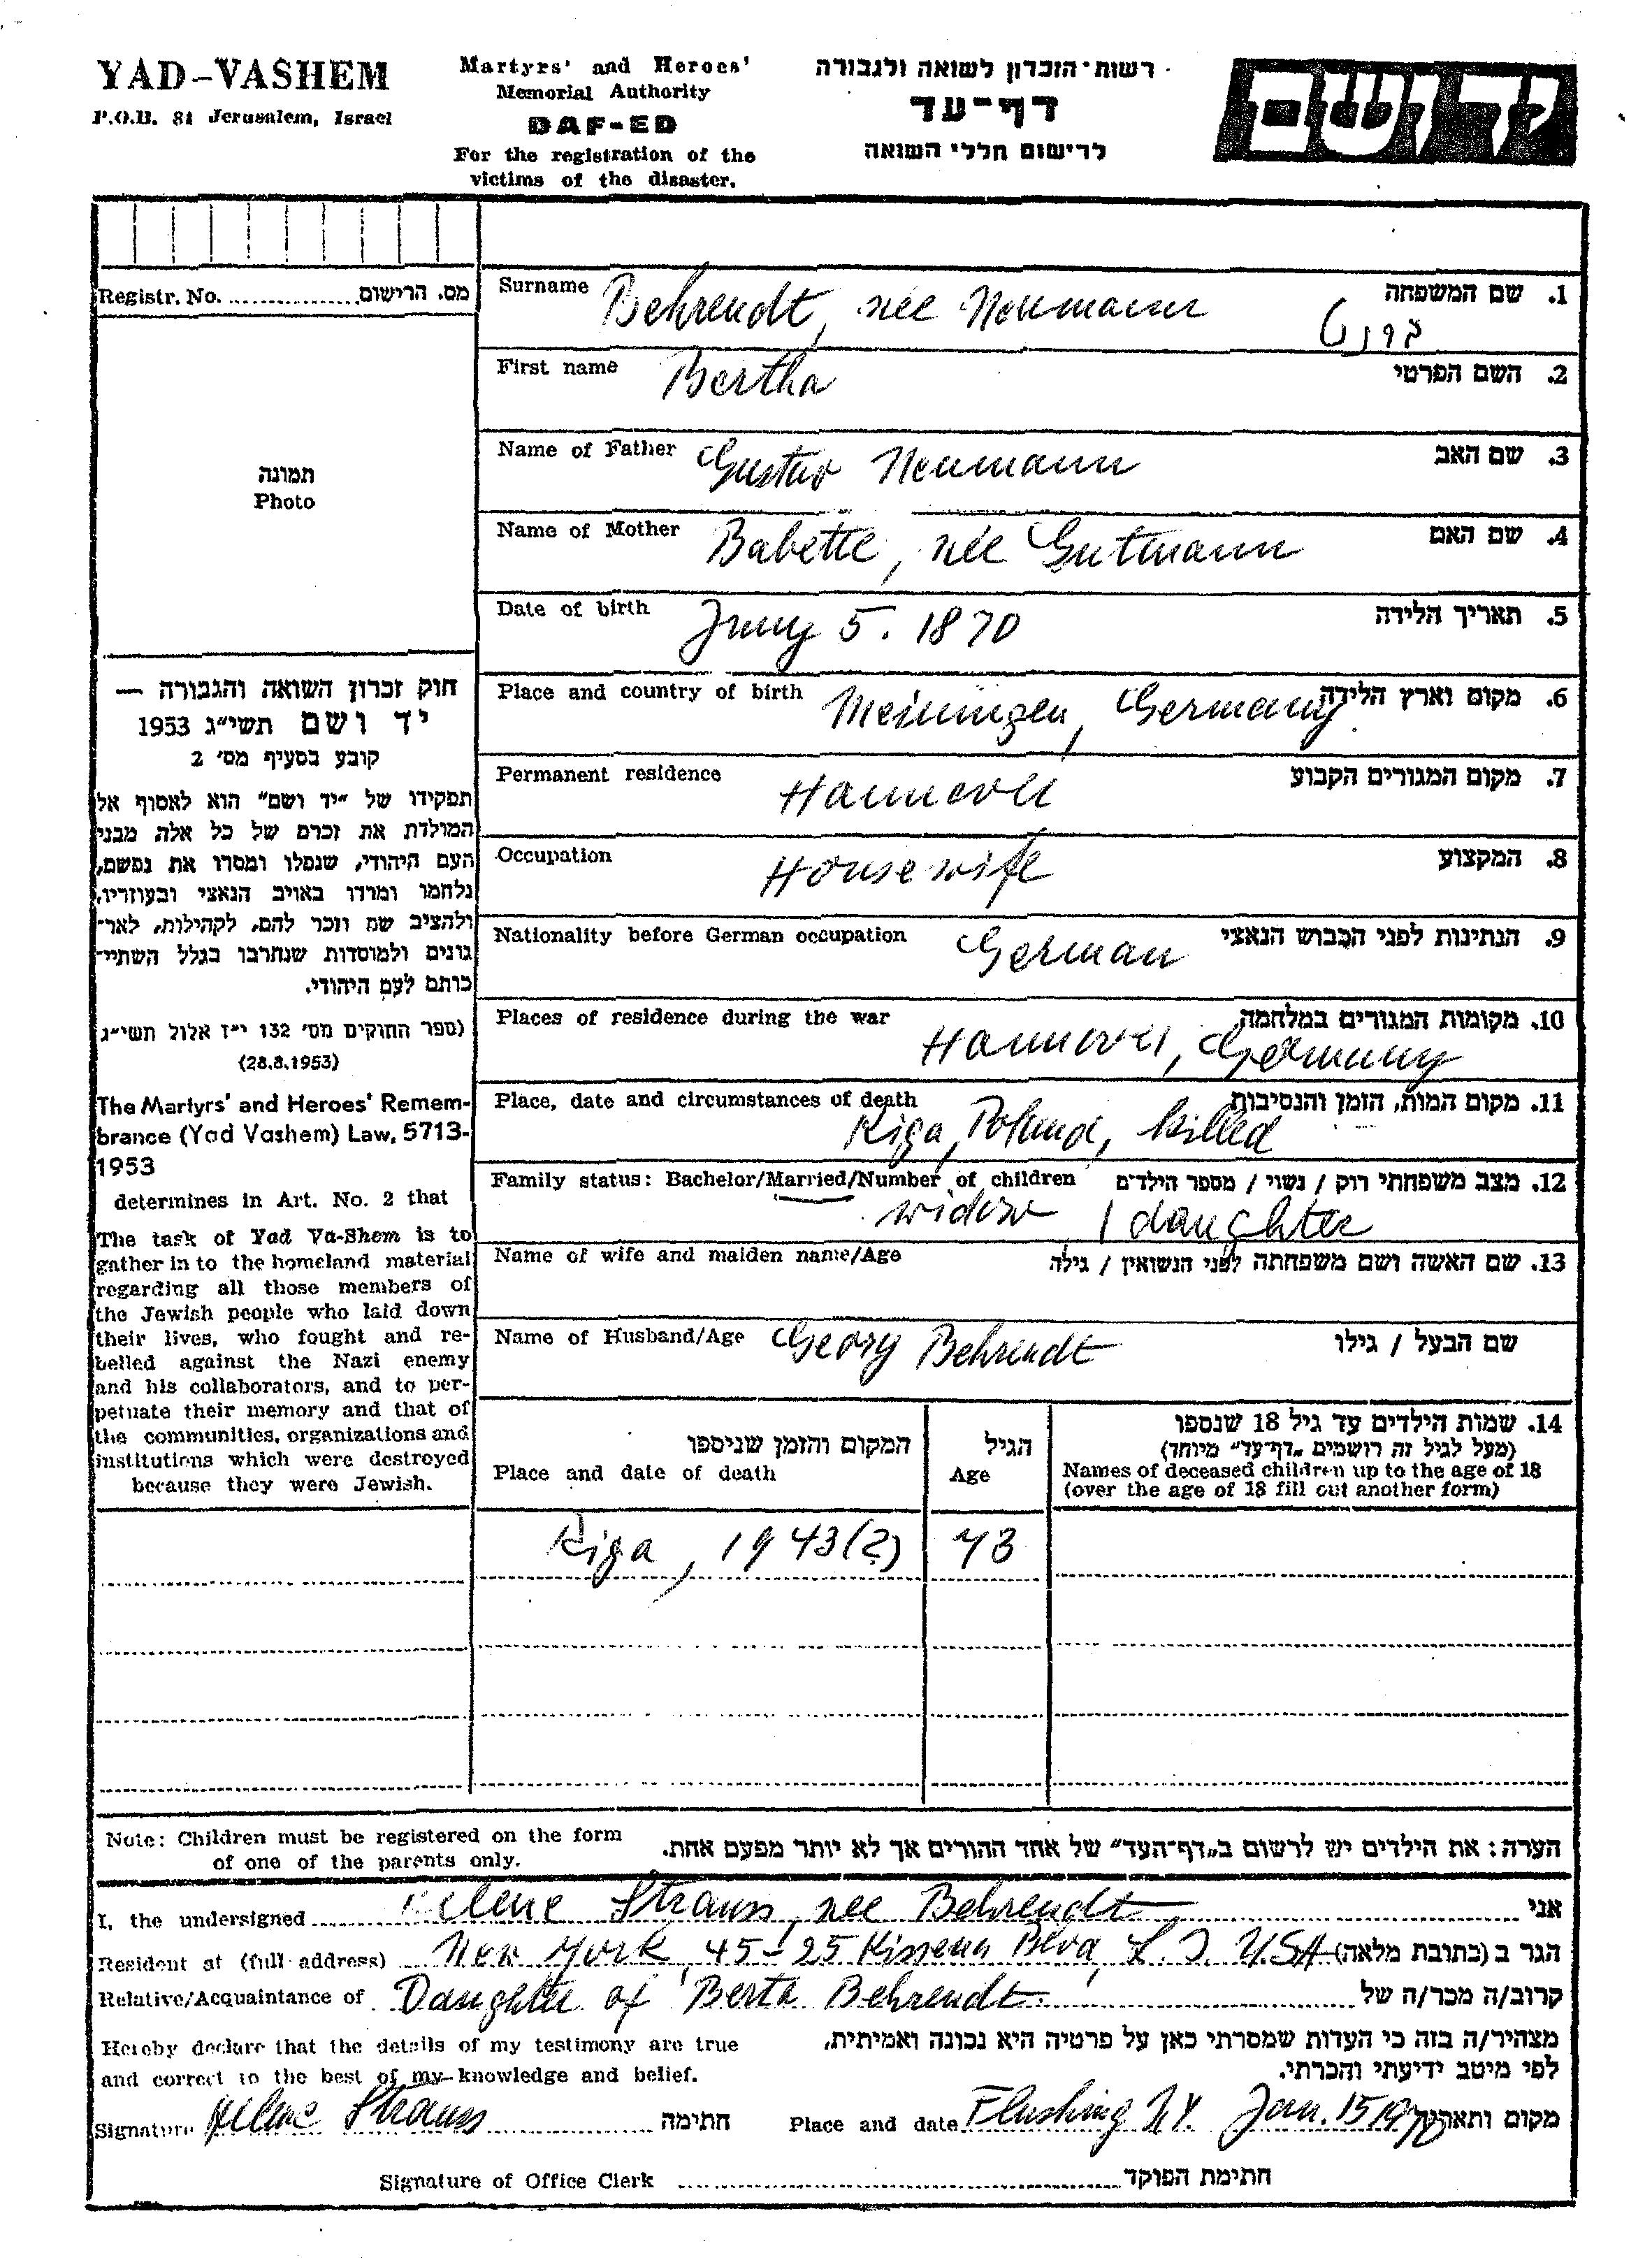 YAD-VASHEM
P.O.B. 84 Jerusalem, Israel
Martyrs' and Heroes'
Memorial Authority
DAF-ED
For the registration of the
victims of the disaster.
רשות־הזכרון לשואה ולגבורה
דף־עד
לרישום חללי השואה
יד ושם
Registr. No. ............... מס. הרישום
תמונה
Photo
חוק זכרון השואה והגבורה —
יד ושם תשי"ג 1953
קובע בסעיף מס' 2
תפקידו של "יד ושם" הוא לאסוף אל
המולדת את זכרם של כל אלה מבני
העם היהודי, שנפלו ומסרו את נפשם,
נלחמו ומרדו באויב הנאצי ובעוזריו,
ולהציב שם וזכר להם, לקהילות, לאר־
גונים ולמוסדות שנחרבו בגלל השתיי־
כותם לעם היהודי.
(ספר החוקים מס' 132 י"ז אלול תשי"ג
(28.8.1953)
The Martyrs' and Heroes' Remem-
brance (Yad Vashem) Law, 5713-
1953
determines in Art. No. 2 that
The task of Yad Va-Shem is to
gather in to the homeland material
regarding all those members of
the Jewish people who laid down
their lives, who fought and re-
belled against the Nazi enemy
and his collaborators, and to per-
petuate their memory and that of
the communities, organizations and
institutions which were destroyed
because they were Jewish.
Surname Behrendt, née Neumann 1. שם המשפחה
First name Bertha 2. השם הפרטי
Name of Father Gustav Neumann 3. שם האב
Name of Mother Babette, née Gutmann 4. שם האם
Date of birth 5. 1870 5. תאריך הלידה
Place and country of birth Meiningen, Germany 6. מקום וארץ הלידה
Permanent residence Hannover 7. מקום המגורים הקבוע
Occupation Housewife 8. המקצוע
Nationality before German occupation German 9. הנתינות לפני הכבוש הנאצי
Places of residence during the war Hannover, Germany 10. מקומות המגורים במלחמה
Place, date and circumstances of death Riga, Poland, killed 11. מקום המות, הזמן והנסיבות
Family status: Bachelor/Married/Number of children 12. מצב משפחתי רוק / נשוי / מספר הילדים
widow 1 daughter
Name of wife and maiden name/Age 13. שם האשה ושם משפחתה לפני הנשואין / גילה
Name of Husband/Age Georg Behrendt שם הבעל / גילו
המקום והזמן שניספו
Place and date of death
הגיל
Age
14. שמות הילדים עד גיל 18 שנספו
(מעל לגיל זה רושמים "דף־עד" מיוחד)
Names of deceased children up to the age of 18
(over the age of 18 fill out another form)
Riga, 1943(?) 73
Note: Children must be registered on the form
of one of the parents only.
הערה: את הילדים יש לרשום ב"דף־העד" של אחד ההורים אך לא יותר מפעם אחת.
I, the undersigned Helene Strauss, nee Behrendt אני
Resident at (full address) New York, 45-25 Kissena Blvd, L.I. USA הגר ב (כתובת מלאה)
Relative/Acquaintance of Daughter of Berta Behrendt קרוב/ה מכר/ה של
Hereby declare that the details of my testimony are true
and correct to the best of my knowledge and belief.
מצהיר/ה בזה כי העדות שמסרתי כאן על פרטיה היא נכונה ואמיתית,
לפי מיטב ידיעתי והכרתי.
Signature Helene Strauss חתימה Place and date Flushing N.Y. Jan. 15 מקום ותאריך
Signature of Office Clerk חתימת הפוקד